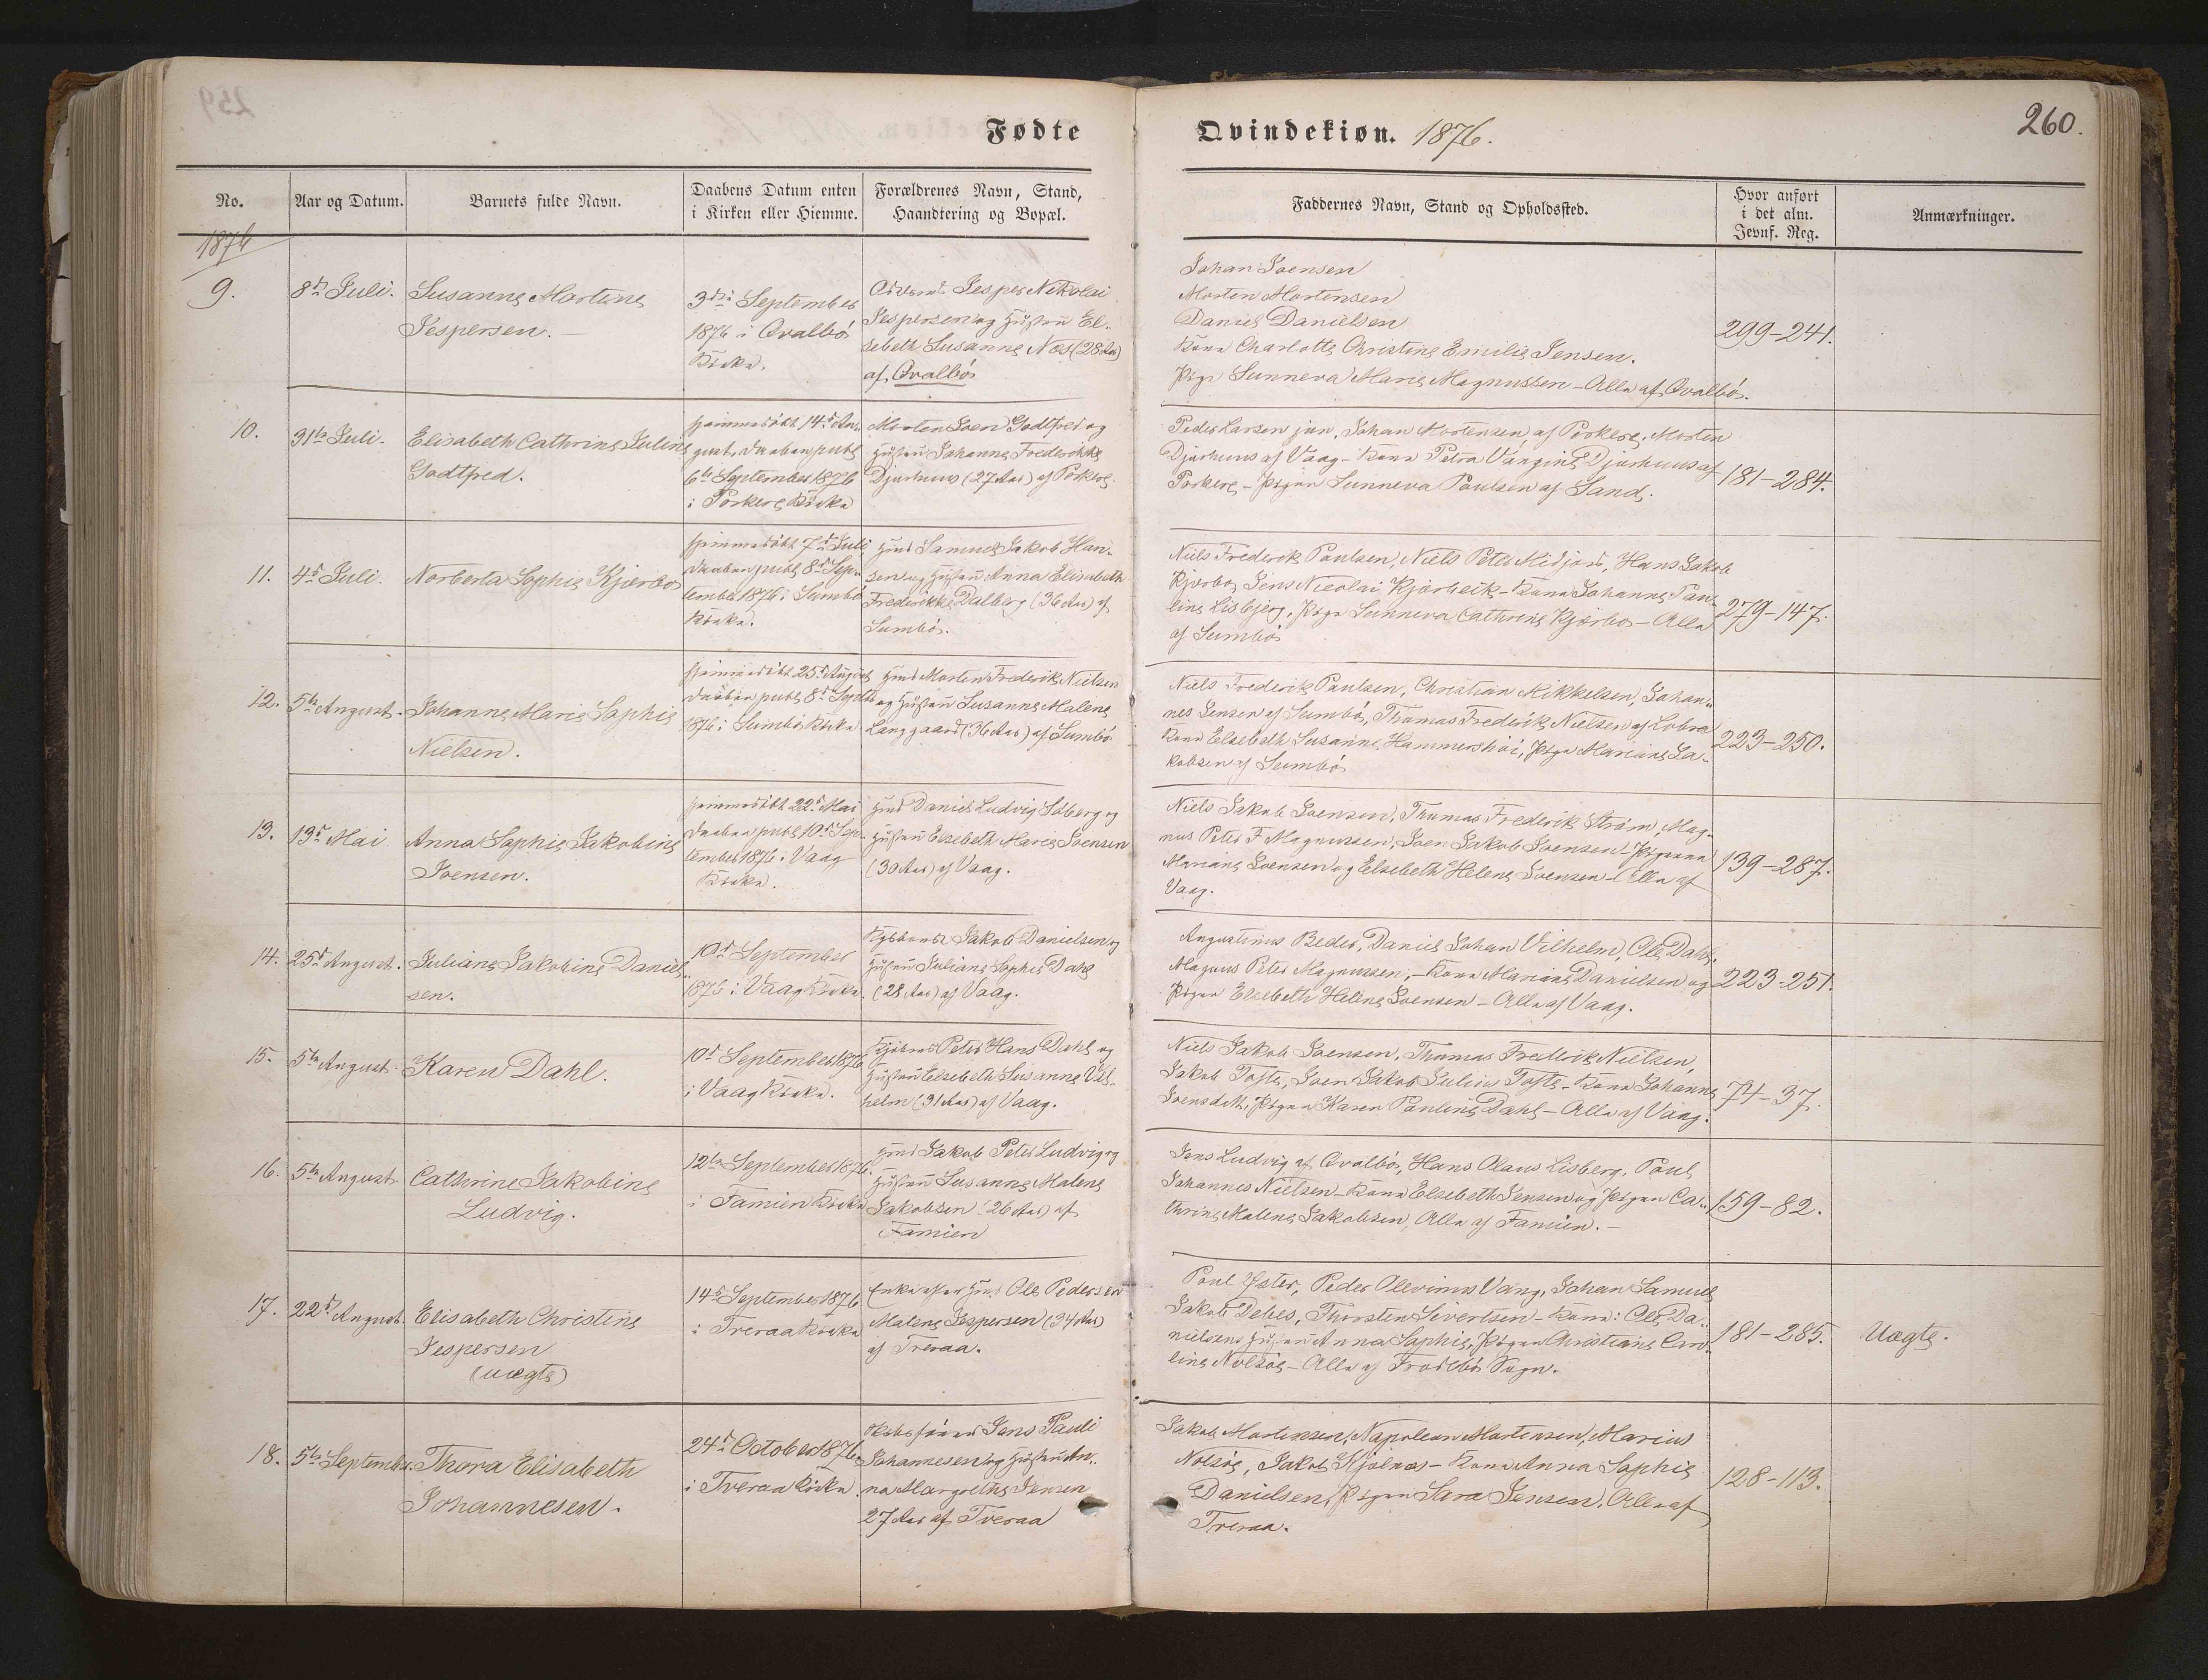 Fødte
Qvindekiøn. 1876.
260.
No.
Aar og Datum.
Barnets fulde Navn.
Daabens Datum enten
i Kirken eller Hiemme.
Forældrenes Navn, Stand,
Haandtering og Bopæl.
Faddernes Navn, Stand og Opholdssted.
Hvor anført
i det alm.
Jevnf. Reg.
Anmærkninger.
1876
9.
8de Juli.
Susanne Martine
Jespersen.
3die September
1876 i Qvalbö
Kirke.
Jesper Nikolai
Jespersen og Hustru El-
sebeth Susanne Næs (28 Aar)
af Qvalbö
Johan Joensen
Morten Mortensen
Daniel Danielsen
Kone Charlotte Christine Emilie Jensen.
Pige Sunneva Marie Magnussen - Alle af Qvalbö.
299-241.
10.
31te Juli.
Elisabeth Cathrine Juline
Godtfred.
Hjemmedöbt 14d Au-
gust, Daaben publ
6te September 1876
i Porkere Kirke
Morten Joen Godtfred og
Hustru Johanne Frederikke
Djurhuus (27 Aar) af Porkere.
Peder Larsen jun, Johan Mortensen af Porkere, Morten
Djurhuus af Vaag - Kone Petra Vangine Djurhuus af
Porkere - Pigen Sunneva Poulsen af Sand.
181-284.
11.
4d Juli.
Norberta Sophie Kjærbo
Hjemmedöbt 7d Juli
Daaben publ 8d Sep-
tember 1876 i Sumbö
Kirke.
Gmd Samuel Jakob Han-
sen og Hustru Anna Elisabeth
Frederikke Dalberg (36 Aar) af
Sumbö.
Niels Frederik Poulsen, Niels Peter Midjord, Hans Jakob
Kjærbo, Jens Nicolai Kjærbeck - Kone Johanne Pau-
line Lisbjerg, Pige Sunneva Cathrine Kjærbo - Alle
af Sumbö
279-147.
12.
5te August.
Johanne Marie Sophie
Nielsen.
Hjemmedöbt 25d August
Daaben publ 8d Septbr
1876 i Sumbö Kirke
Gmd Morten Frederik Nielsen
og Hustru Susanne Malene
Langgaard (36 Aar) af Sumbö
Niels Frederik Poulsen, Christian Mikkelsen, Johan-
nes Jensen af Sumbö, Thomas Frederik Nielsen af Lobra
Kone Elsebeth Susanne Hammershöi, Pige Mariane Ja-
kobsen af Sumbö
223-250.
13.
13d Mai
Anna Sophie Jakobine
Joensen.
Hjemmedöbt 22d Mai
Daaben publ 10d Sep-
tember 1876 i Vaag
Kirke.
Gmd Daniel Ludvig Söberg og
Hustru Elsebeth Marie Joensen
(30 Aar) af Vaag.
Niels Jakob Joensen, Thomas Frederik Ström, Mag-
nus Peter F Magnussen, Joen Jakob Joensen - Pigerne
Mariane Joensen og Elsebeth Helene Joensen - Alle af
Vaag.
139-287.
14.
25d August.
Juliane Jakobine Daniel-
sen.
10d September
1876 i Vaag Kirke.
Jakob Danielsen og
Hustru Juliane Sophie Dahl
(28 Aar) af Vaag.
Augustinus Beder, Daniel Johan Vilhelm, Ole Dahl,
Magnus Peter Magnussen, - Kone Mariane Danielsen og
Pigen Elsebeth Helene Joensen - Alle af Vaag.
223-251.
15.
5te August.
Karen Dahl.
10d September 1876
i Vaag Kirke.
Peter Hans Dahl og
Hustru Elsebeth Susanne Vil-
helm (31 Aar) af Vaag.
Niels Jakob Joensen, Thomas Frederik Nielsen,
Jakob Tofte, Joen Jakob Julius Tofte - Kone Johanne
Joensdatt, Pigen Karen Pauline Dahl - Alle af Vaag.
74-37.
16.
5te August.
Cathrine Jakobine
Ludvig.
12te September 1876.
i Famien Kirke
Gmd Jakob Peter Ludvig og
Hustru Susanne Malene
Jakobsen (26 Aar) af
Famien
Jens Ludvig af Qvalbö, Hans Olaus Lisberg, Poul
Johannes Nielsen - Kone Elsebeth Jensen og Pigen Ca-
thrine Malene Jakobsen, Alle af Famien.
159-82.
17.
22d August.
Elisabeth Christine
Jespersen
(uægte)
14d September 1876
i Tveraa Kirke
Enke efter Gmd Ole Pedersen
Malene Jespersen (34 Aar)
af Tveraa.
Poul Yster, Peder Olevinus Vang, Johan Samuel
Jakob Debes, Thorsten Sivertsen - Kone: Ole Da-
nielsens Hustru Anna Sophie, Pigen Christiane Caro-
line Nolsöe - Alle af Frodebö Sogn.
181-285.
Uægte.
18.
5te September.
Thora Elisabeth
Johannesen.
24d October 1876
i Tveraa Kirke.
Jens Pauli
Johannesen og Hustru An-
na Margrethe Jensen
27 Aar af Tveraa
Jakob Mortensen, Napoleon Mortensen, Marius
Nolsöe, Jakob Kjölnæs - Kone Anna Sophie
Danielsen, Pigen Sara Jensen, Alle af
Tveraa.
128-113.